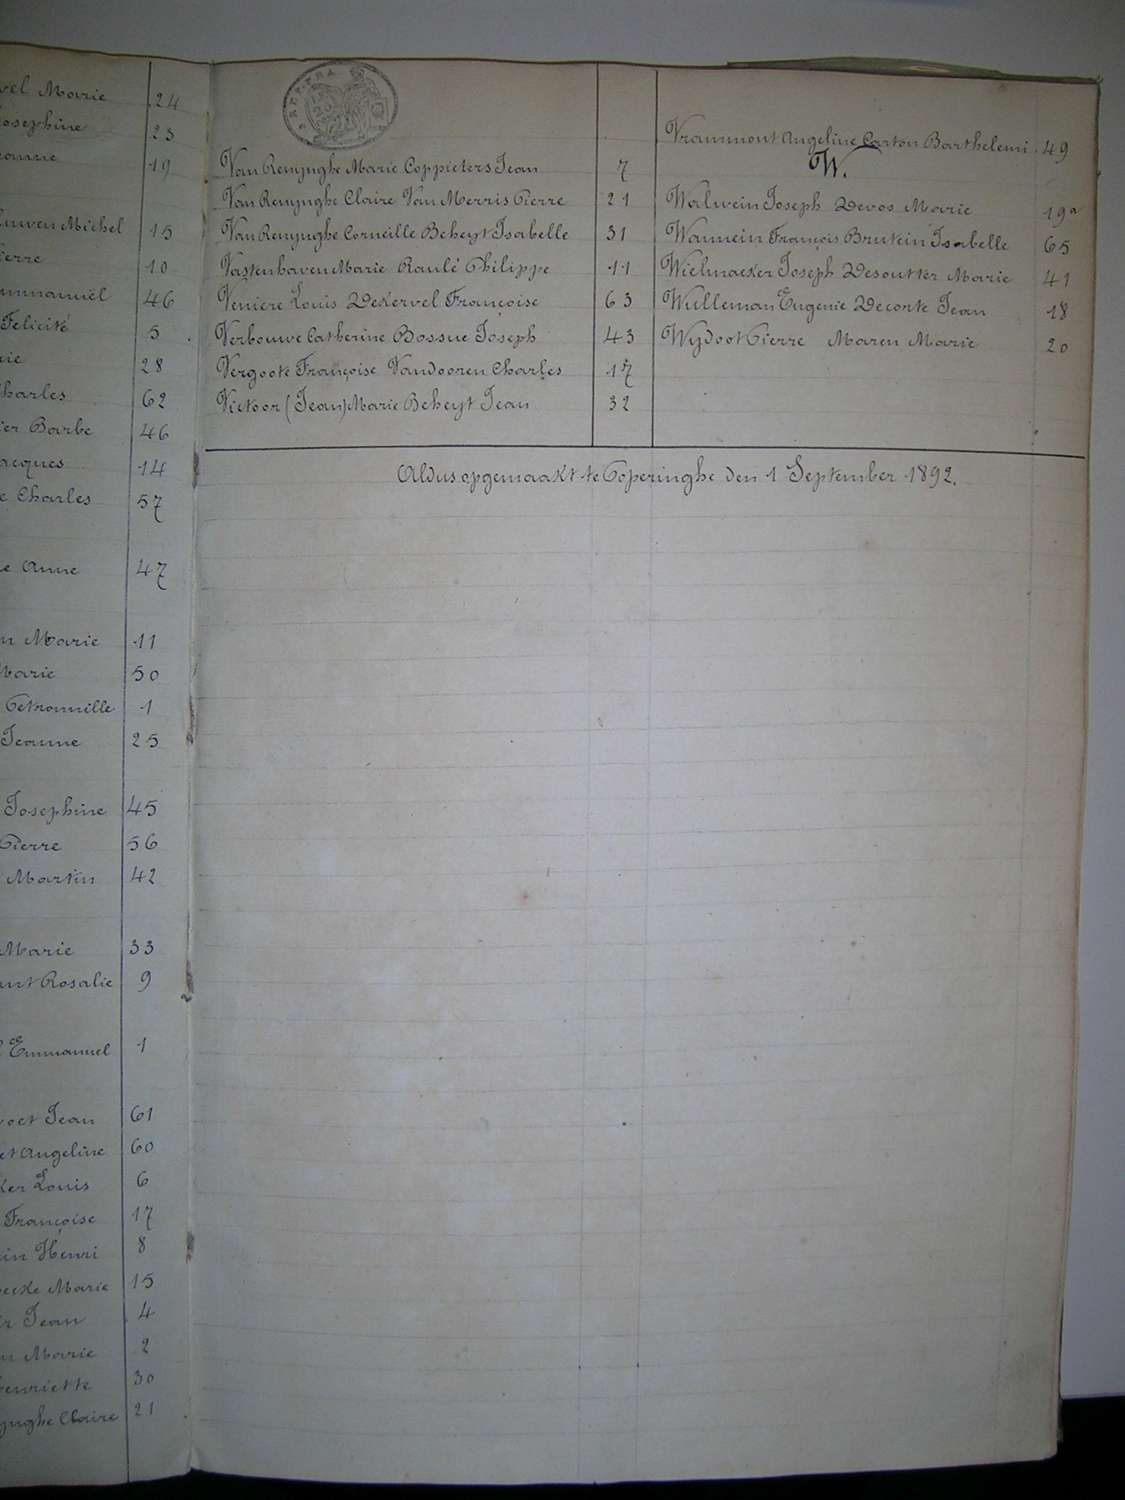 vel Marie 24
Josephine 23
19
Michel 15
ierre 10
mmanuël 46
Felicité 5
rie 28
Charles 62
ier Barbe 46
acques 14
e Charles 57
e Anne 47
n Marie 11
Marie 50
Petronnille 1
Jeanne 25
Josephine 45
Pierre 56
Martin 42
Marie 33
ant Rosalie 9
Emmanuel 1
voet Jean 61
et Angeline 60
ker Louis 6
Françoise 17
in Henri 8
ecke Marie 15
r Jean 4
n Marie 2
Henriette 30
ynghe Claire 21
Van Renynghe Marie Coppieters Jean 7
Van Renynghe Claire Van Merris Pierre 21
Van Renynghe Corneille Beheyt Isabelle 31
Vastenhaven Marie Raulé Philippe 11
Veniere Louis DeKervel Françoise 63
Verbouwe Catherine Bossue Joseph 43
Vergoote Françoise Vandooren Charles 17
Victoor (Jean) Marie Beheyt Jean 32
Vrammont Angeline Carton Barthelemi 49
W.
Walwein Joseph Devos Marie 19a
Wannein François Brutein Isabelle 65
Wielmaeker Joseph Desoutter Marie 41
Wulleman Eugenie Deconte Jean 18
Wydoot Pierre Maren Marie 20
Aldus opgemaakt te Poperinghe den 1 September 1892.